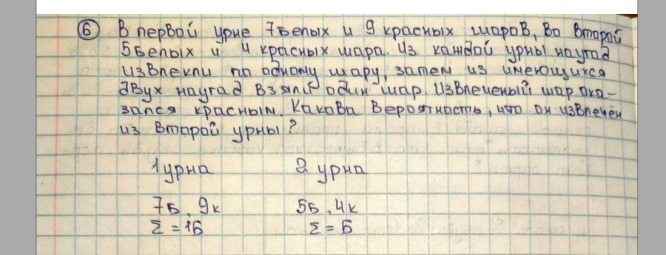 6 В первой урне 7 белых и 9 красных шаров, во второй
5 белых и 4 красных шара. Из каждой урны наугад
извлекли по одному шару, затем из имеющихся
двух наугад взяли один шар. Извлеченый шар ока-
зался красным. Какова вероятность, что он извлечён
из второй урны?
1 урна 2 урна
7Б, 9к 5Б, 4к
Σ = 1Б Σ = Б